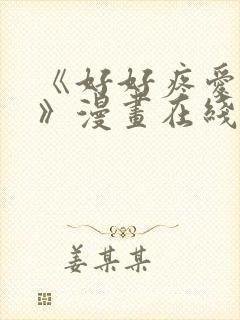 《好好疼爱
》漫畫在綫
姜某某